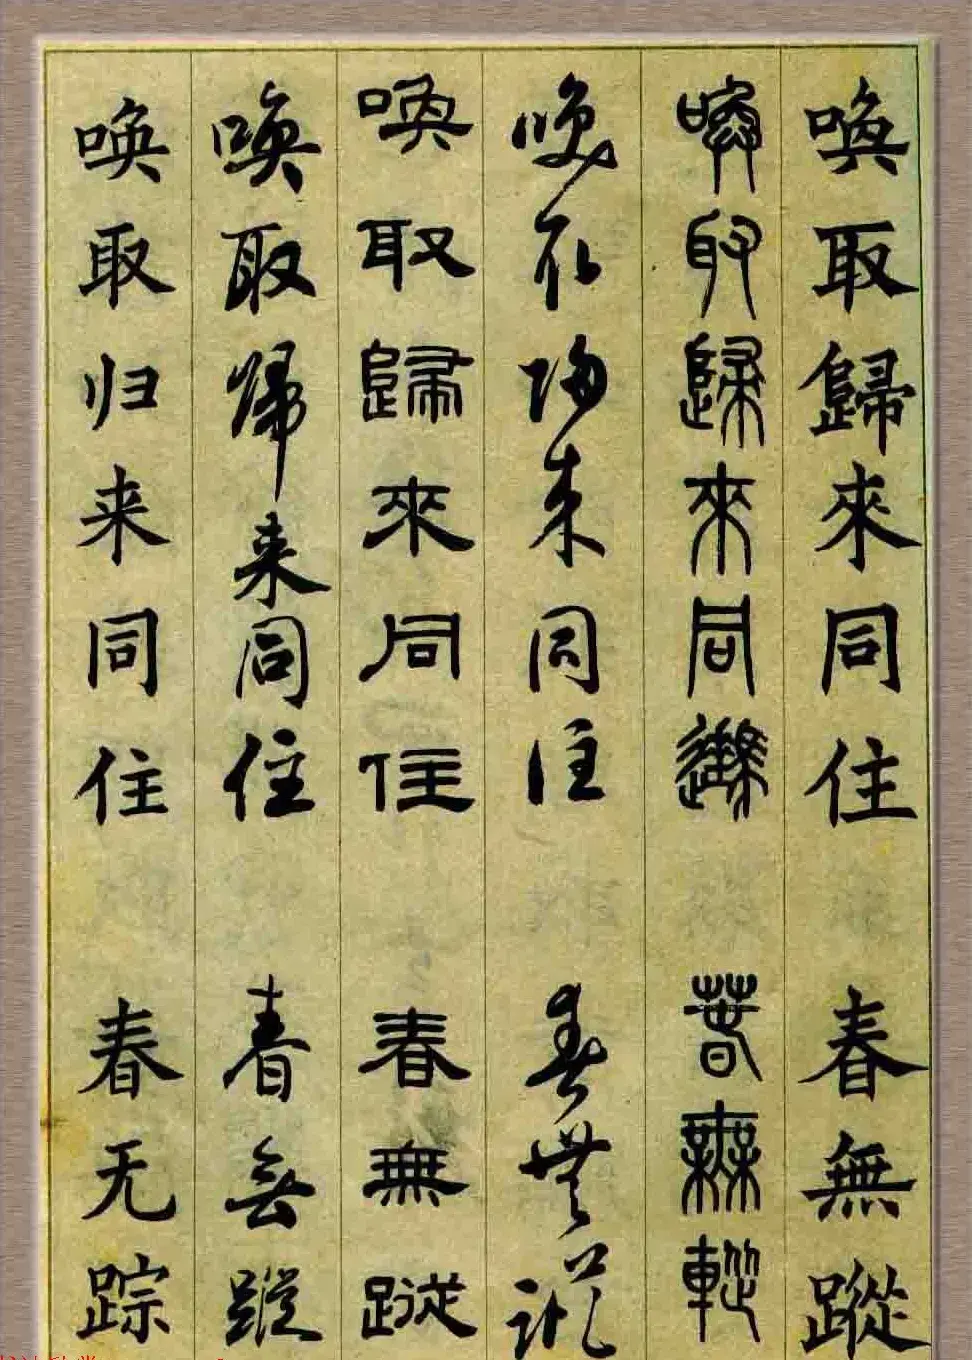 喚取歸來同住 春無蹤
喚取歸來同住 春無蹤
喚取歸來同住 春無蹤
喚取歸來同住 春無蹤
唤取归来同住 春无踪